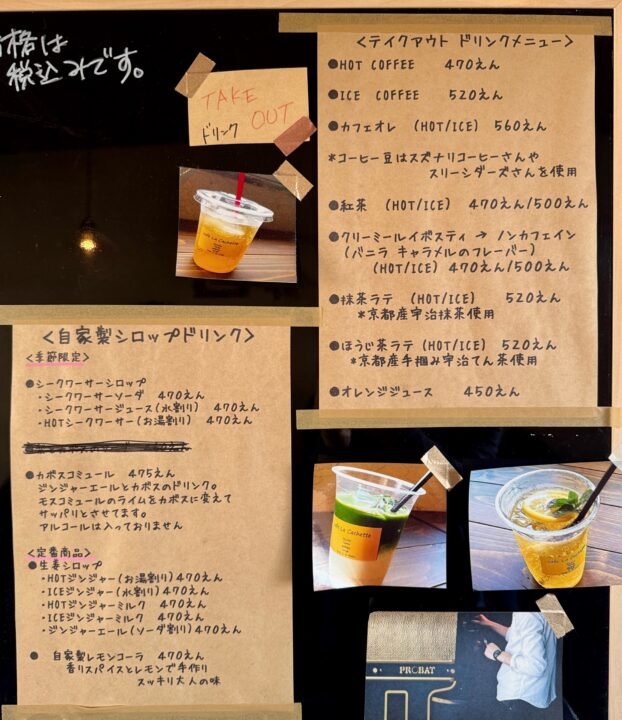 価格は
税込みです。
TAKE
OUT
ドリンク
Cafe La Cachette
<テイクアウト ドリンクメニュー>
●HOT COFFEE 470えん
●ICE COFFEE 520えん
●カフェオレ (HOT/ICE) 560えん
*コーヒー豆はスズナリコーヒーさんや
スリーシダーズさんを使用
●紅茶 (HOT/ICE) 470えん/500えん
●クリーミールイボスティ → ノンカフェイン
(バニラ キャラメルのフレーバー)
(HOT/ICE) 470えん/500えん
●抹茶ラテ (HOT/ICE) 520えん
*京都産宇治抹茶使用
●ほうじ茶ラテ(HOT/ICE) 520えん
*京都産手摘み宇治てん茶使用
●オレンジジュース 450えん
<自家製シロップドリンク>
<季節限定>
●シークワーサーシロップ
・シークワーサーソーダ 470えん
・シークワーサージュース(水割り) 470えん
・HOTシークワーサー(お湯割り) 470えん
●カボスコミュール 475えん
ジンジャーエールとカボスのドリンク。
モスコミュールのライムをカボスに変えて
サッパリとさせてます。
アルコールは入っておりません
<定番商品>
●生姜シロップ
・HOTジンジャー(お湯割り)470えん
・ICEジンジャー(水割り)470えん
・HOTジンジャーミルク 470えん
・ICEジンジャーミルク 470えん
・ジンジャーエール(ソーダ割り)470えん
● 自家製レモンコーラ 470えん
香りスパイスとレモンで手作り
スッキリ大人の味
Cafe La Cachette
Cafe La Cachette
PROBAT